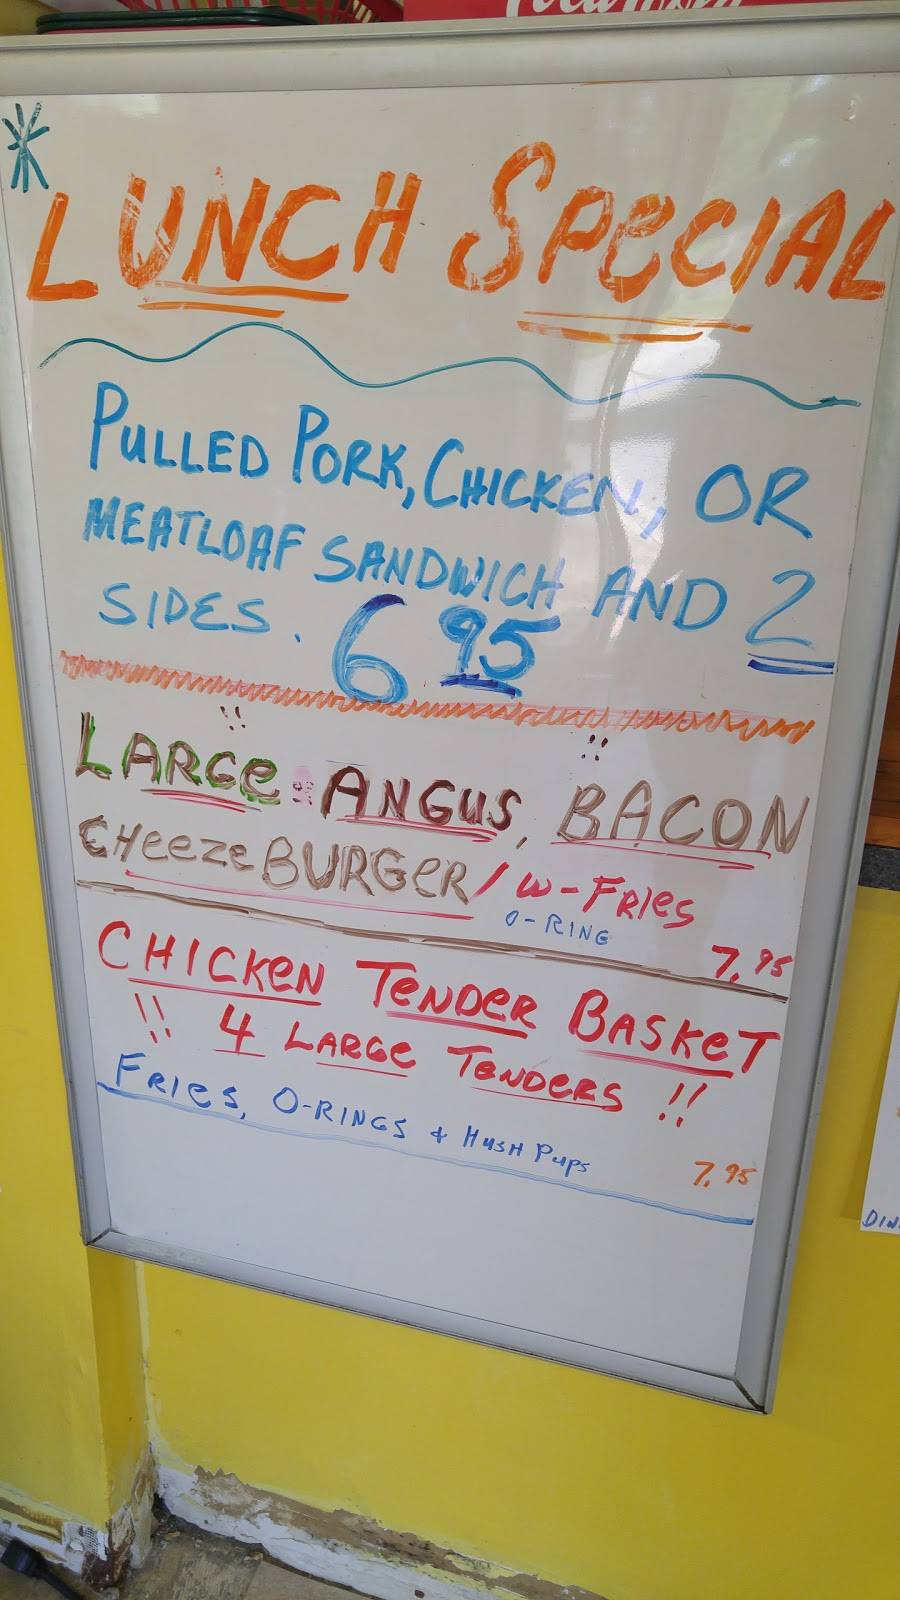 LUNCH SPECIAL
PULLED PORK, CHICKEN, OR
MEATLOAF SANDWICH AND 2
SIDES. 6 95
LARGE ANGUS, BACON
CHEEZEBURGER / W-FRIES
O-RING
7.95
CHICKEN TENDER BASKET
!! 4 LARGE TENDERS !!
FRIES, O-RINGS + HUSH PUPS
7.95